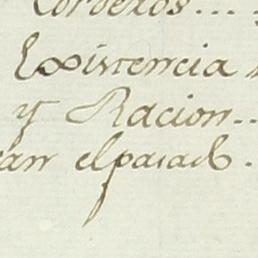 Corderos....
Existencia
y Racion..
an el pasado.